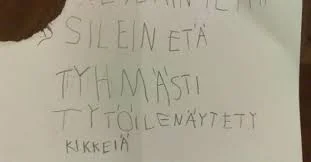 SILEIN ETÄ
TYHMÄSTI
TYTÖILENÄYTETY
KIKKEIÄ